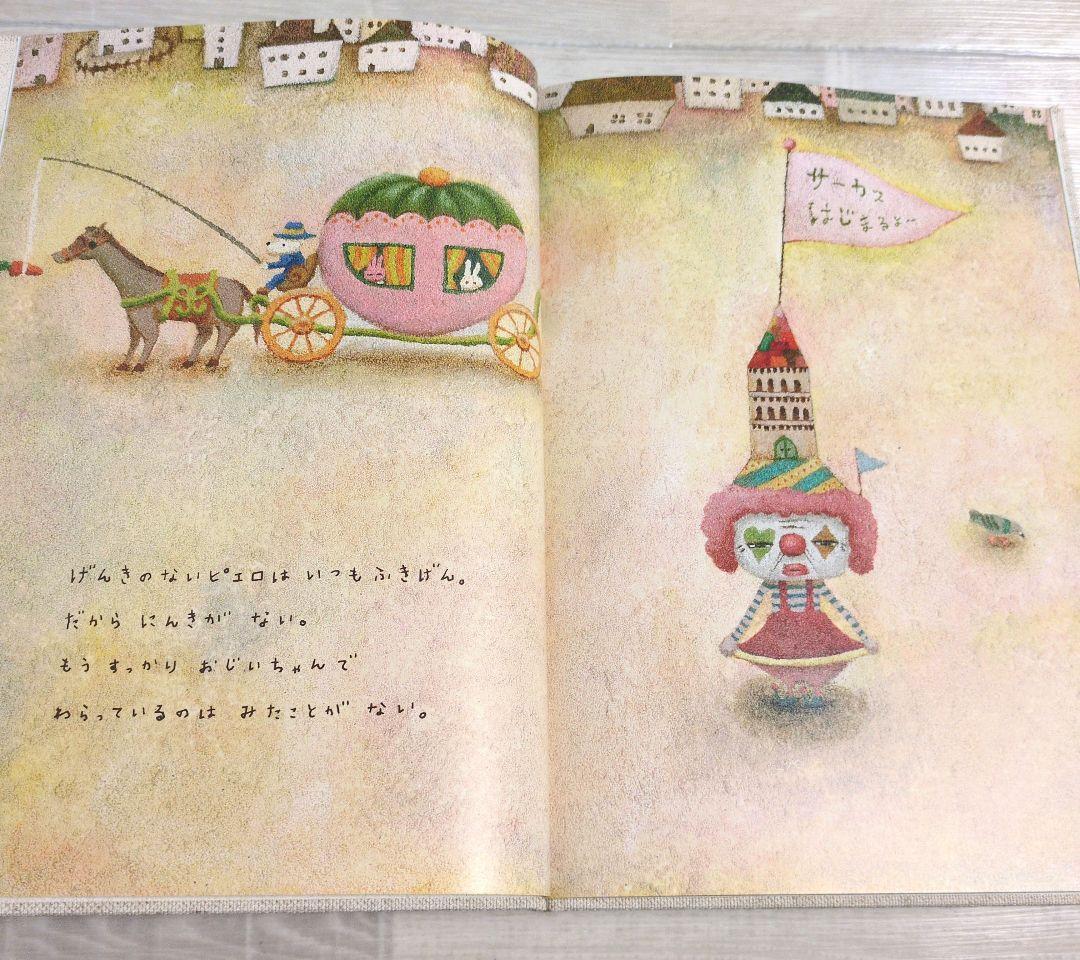 げんきのないピエロは いつも ふきげん。
だから にんきが ない。
もう すっかり おじいちゃんで
わらっているのは みたことが ない。
サーカス
はじまるよー